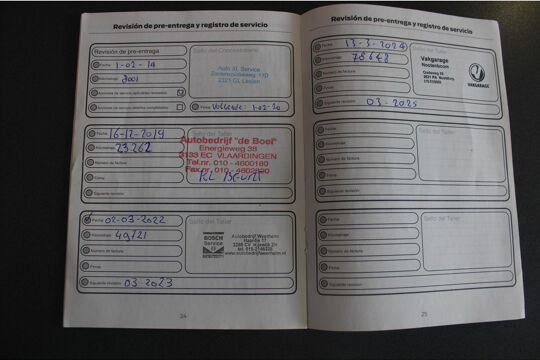 Revisión de pre-entrega y registro de servicio
Revisión de pre-entrega
Fecha 1-02-19
Kilometraje
Acciones de servicio aplicables revisadas
Acciones de servicio abiertas completadas
Sello del Concesionario
Auto XL Service
2321 GL Leiden
Fecha
1-02-20
Fecha 16-12-2019
Kilometraje 23262
Número de factura
Firma
Siguiente revisión
Sello del Taller
Autobedrijf "de Boei"
Energieweg 38
3133 EC VLAARDINGEN
Tel.nr. 010 - 4600180
Fax.nr. 010 -
KL BEURT
Fecha 02-03-2022
Kilometraje 49121
Número de factura
Firma
Siguiente revisión 03-2023
Sello del Taller
BOSCH
Service
Autobedrijf Westheim
24
Revisión de pre-entrega y registro de servicio
Fecha 13-3-2024
Kilometraje 78648
Número de factura
Firma
Siguiente revisión 03-2025
Sello del Taller
Vakgarage
VAKGARAGE
Fecha
Kilometraje
Número de factura
Firma
Siguiente revisión
Sello del Taller
Fecha
Kilometraje
Número de factura
Firma
Siguiente revisión
Sello del Taller
25